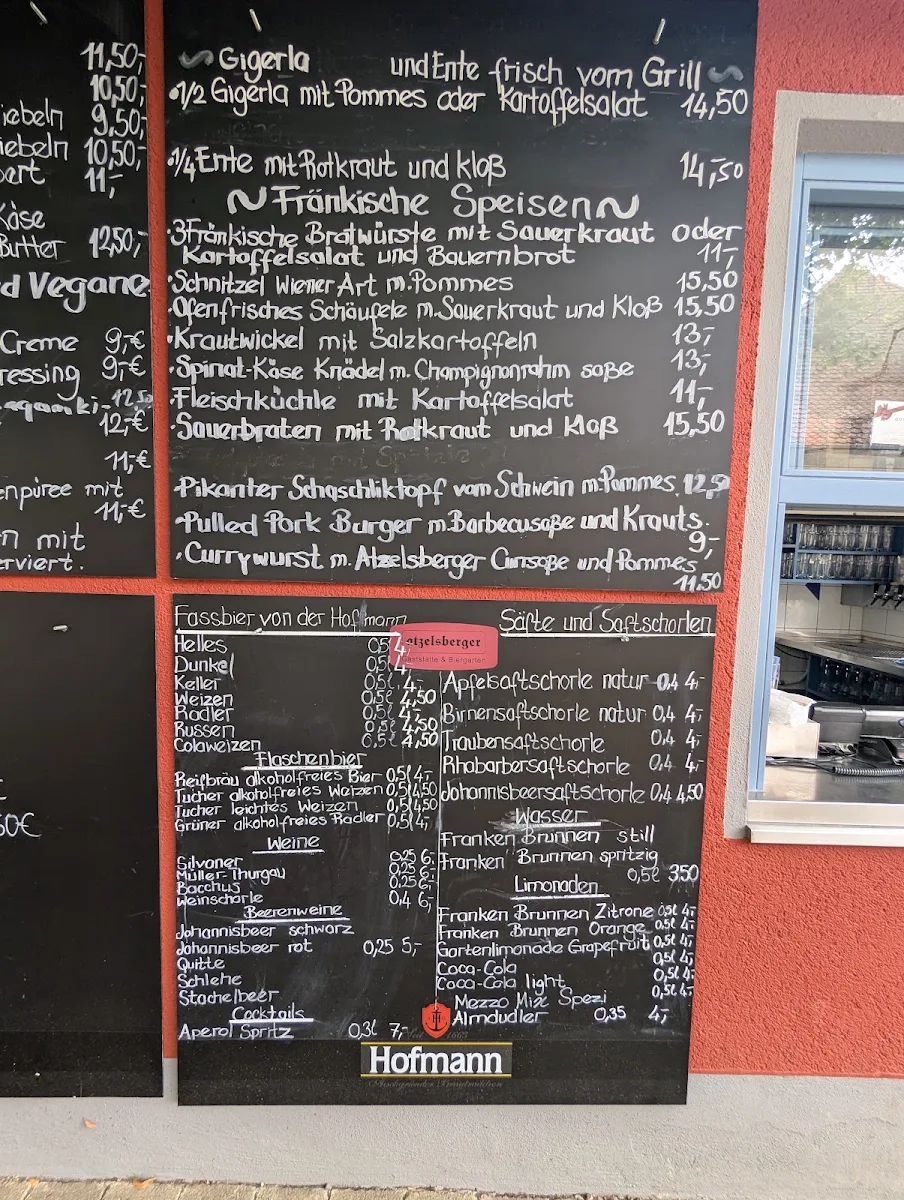 11,50,-
10,50,-
iebeln 9,50,-
iebeln 10,50,-
11,-
Käse
Butter 12,50,-
d Vegane
Creme 9,-€
ressing 9,-€
12,-€
11,-€
enpüree mit
11,-€
n mit
rviert.
50€
~ Gigerla und Ente frisch vom Grill ~
·1/2 Gigerla mit Pommes oder Kartoffelsalat 14,50
·1/4 Ente mit Rotkraut und Kloß 14,50
~Fränkische Speisen~
·3 Fränkische Bratwürste mit Sauerkraut oder
Kartoffelsalat und Bauernbrot 11,-
·Schnitzel Wiener Art m. Pommes 15,50
·Ofenfrisches Schäufele m. Sauerkraut und Kloß 15,50
·Krautwickel mit Salzkartoffeln 13,-
·Spinat-Käse Knödel m. Champignonrahm soße 13,-
·Fleischküchle mit Kartoffelsalat 11,-
·Sauerbraten mit Rotkraut und Kloß 15,50
·Pikanter Schaschliktopf vom Schwein m. Pommes 12,50
·Pulled Pork Burger m. Barbecusoße und Krauts.
9,-
·Currywurst m. Atzelsberger Currsoße und Pommes
11.50
Fassbier von der Hofmann
atzelsberger
Gaststätte & Biergarten
Helles 0,5 4,-
Dunkel 0,5l 4,-
Keller 0,5l 4,-
Weizen 0,5l 4,50
Radler 0,5l 4,-
Russen 0,5l 4,50
Colaweizen 0,5l 4,50
Flaschenbier
Reifbräu alkoholfreies Bier 0,5l 4,-
Tucher alkoholfreies Weizen 0,5l 4,50
Tucher leichtes Weizen 0,5l 4,50
Grüner alkoholfreies Radler 0,5l 4,-
Weine
Silvaner 0,25 6,-
Müller-Thurgau 0,25 6,-
Bacchus 0,25 6,-
Weinschorle 0,4 6,-
Beerenweine
Johannisbeer schwarz
Johannisbeer rot 0,25 5,-
Quitte
Schlehe
Stachelbeer
Cocktails
Aperol Spritz 0,3l 7,-
Säfte und Saftschorlen
Apfelsaftschorle natur 0,4 4,-
Birnensaftschorle natur 0,4 4,-
Traubensaftschorle 0,4 4,-
Rhabarbersaftschorle 0,4 4,-
Johannisbeersaftschorle 0,4 4,50
Wasser
Franken Brunnen still
Franken Brunnen spritzig
0,5l 350
Limonaden
Franken Brunnen Zitrone 0,5l 4,-
Franken Brunnen Orange 0,5l 4,-
Gartenlimonade Grapefruit 0,5l 4,-
Coca-Cola 0,5l 4,-
Coca-Cola light 0,5l 4,-
Mezzo Mix Spezi 0,5l 4,-
Almdudler 0,35 4,-
Hofmann